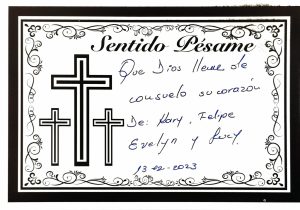 Sentido Pésame
Que Dios llene de
consuelo su corazón
De: Mary, Felipe
Evelyn y Lucy.
13-02-2023